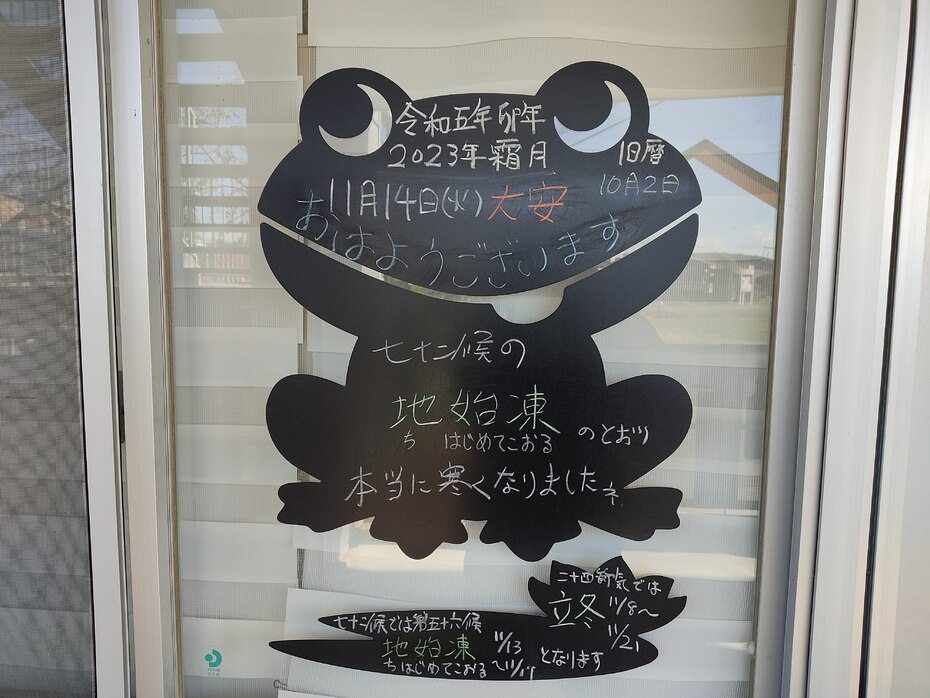 令和五年卯年
2023年霜月
旧暦
10月2日
11月14日(火)大安
おはようございます
七十二候の
地始凍
ち はじめてこおる
のとおり
本当に寒くなりましたネ
二十四節気では
立冬 11/8〜
11/21
七十二候では第五十六候
地始凍 11/13
ちはじめてこおる 〜11/17
となります